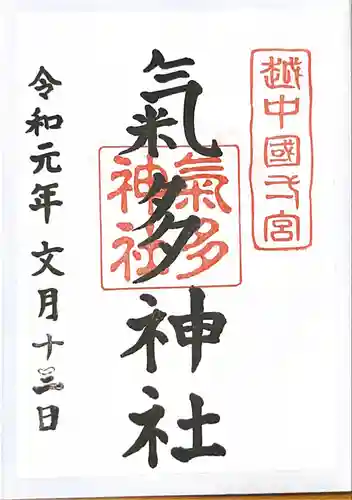 越中國一宮
氣多神社
氣多神社
令和元年文月十三日